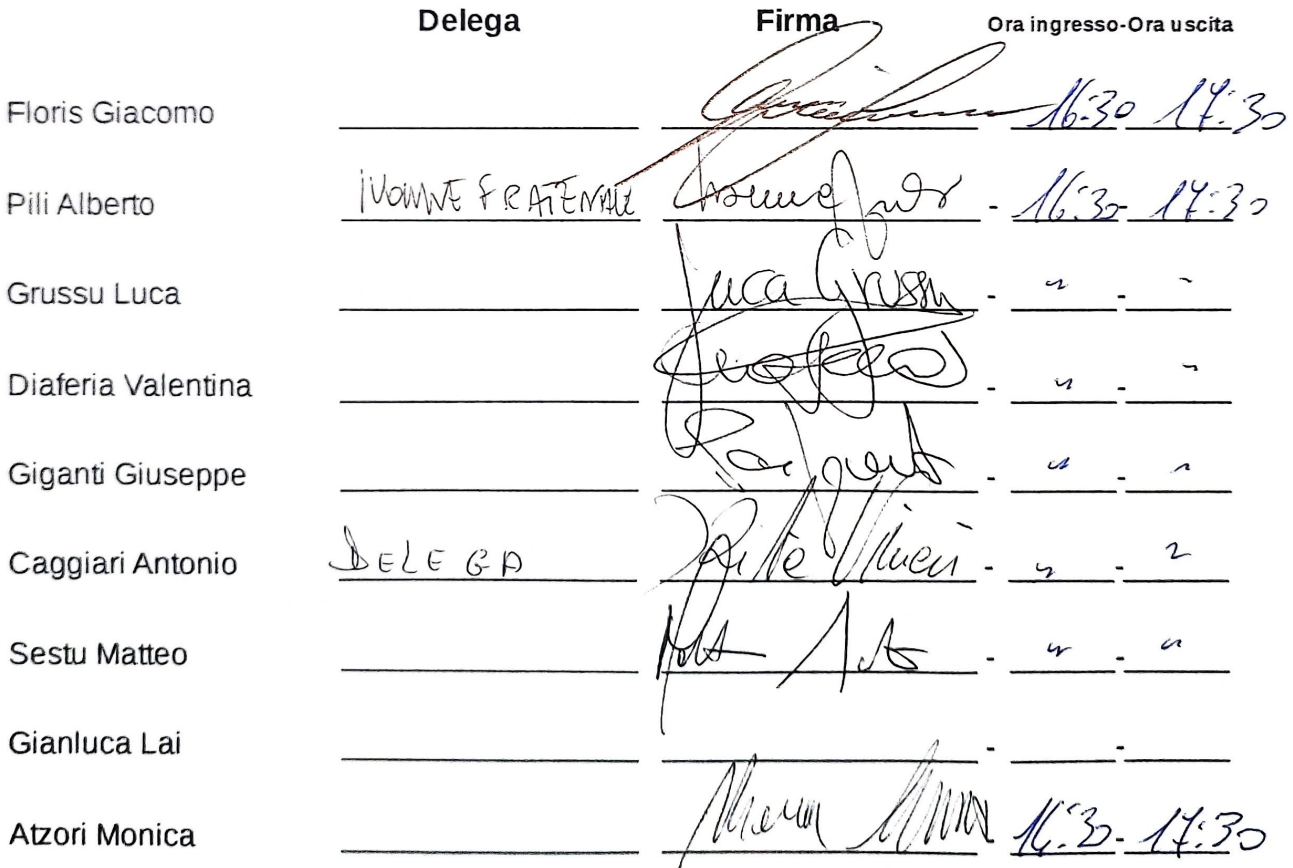 Delega Firma Ora ingresso-Ora uscita
Floris Giacomo 16:30 17:30
Pili Alberto IVONNE FRATERNALE - 16:30 - 17:30
Grussu Luca Luca Grussu - " - "
Diaferia Valentina - " - "
Giganti Giuseppe - " - "
Caggiari Antonio DELEGA - " - "
Sestu Matteo - " - "
Gianluca Lai - -
Atzori Monica 16:30 - 17:30